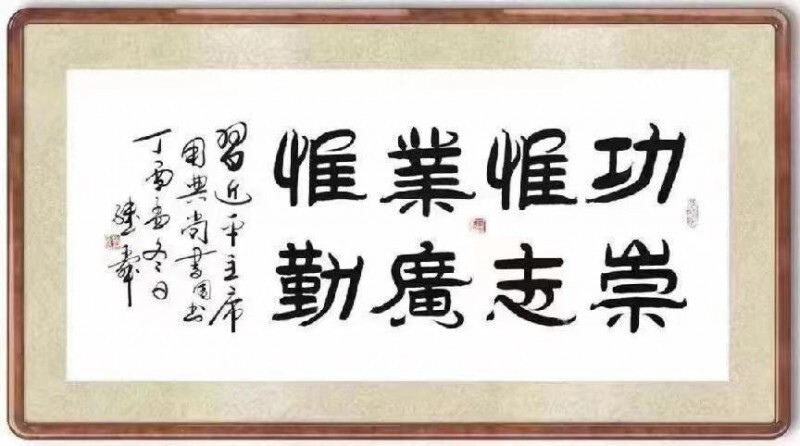 功崇
惟志
業廣
惟勤
習近平主席
用典尚書周书
丁酉孟冬日